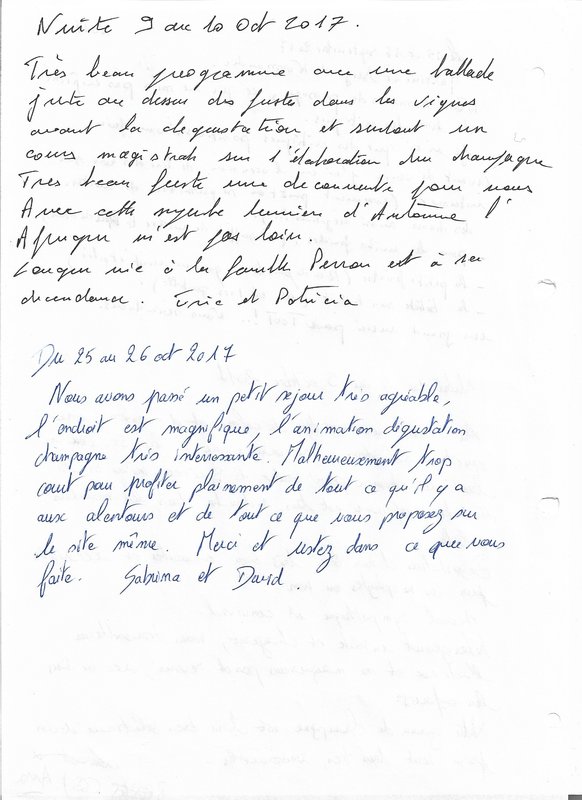 Nuité 9 au 10 Oct 2017.
Très beau programme avec une ballade
juste au dessus des fustes dans les vignes
avant la degustation et surtout un
cours magistrale sur l'élaboration du champagne
Tres beau fuste une decouverte pour nous
Avec cette superbe lumiere d'Automne l'
Afrique n'est pas loin.
Longue vie à la famille Perron et à sa
descendance. Eric et Patricia
Du 25 au 26 oct 2017
Nous avons passé un petit sejour très agréable,
l'endroit est magnifique, l'animation dégustation
champagne très interessante. Malheureusement trop
court pour profiter plainement de tout ce qu'il y a
aux alentours et de tout ce que vous proposez sur
le site même. Merci et restez dans ce que vous
faite. Sabrina et David.